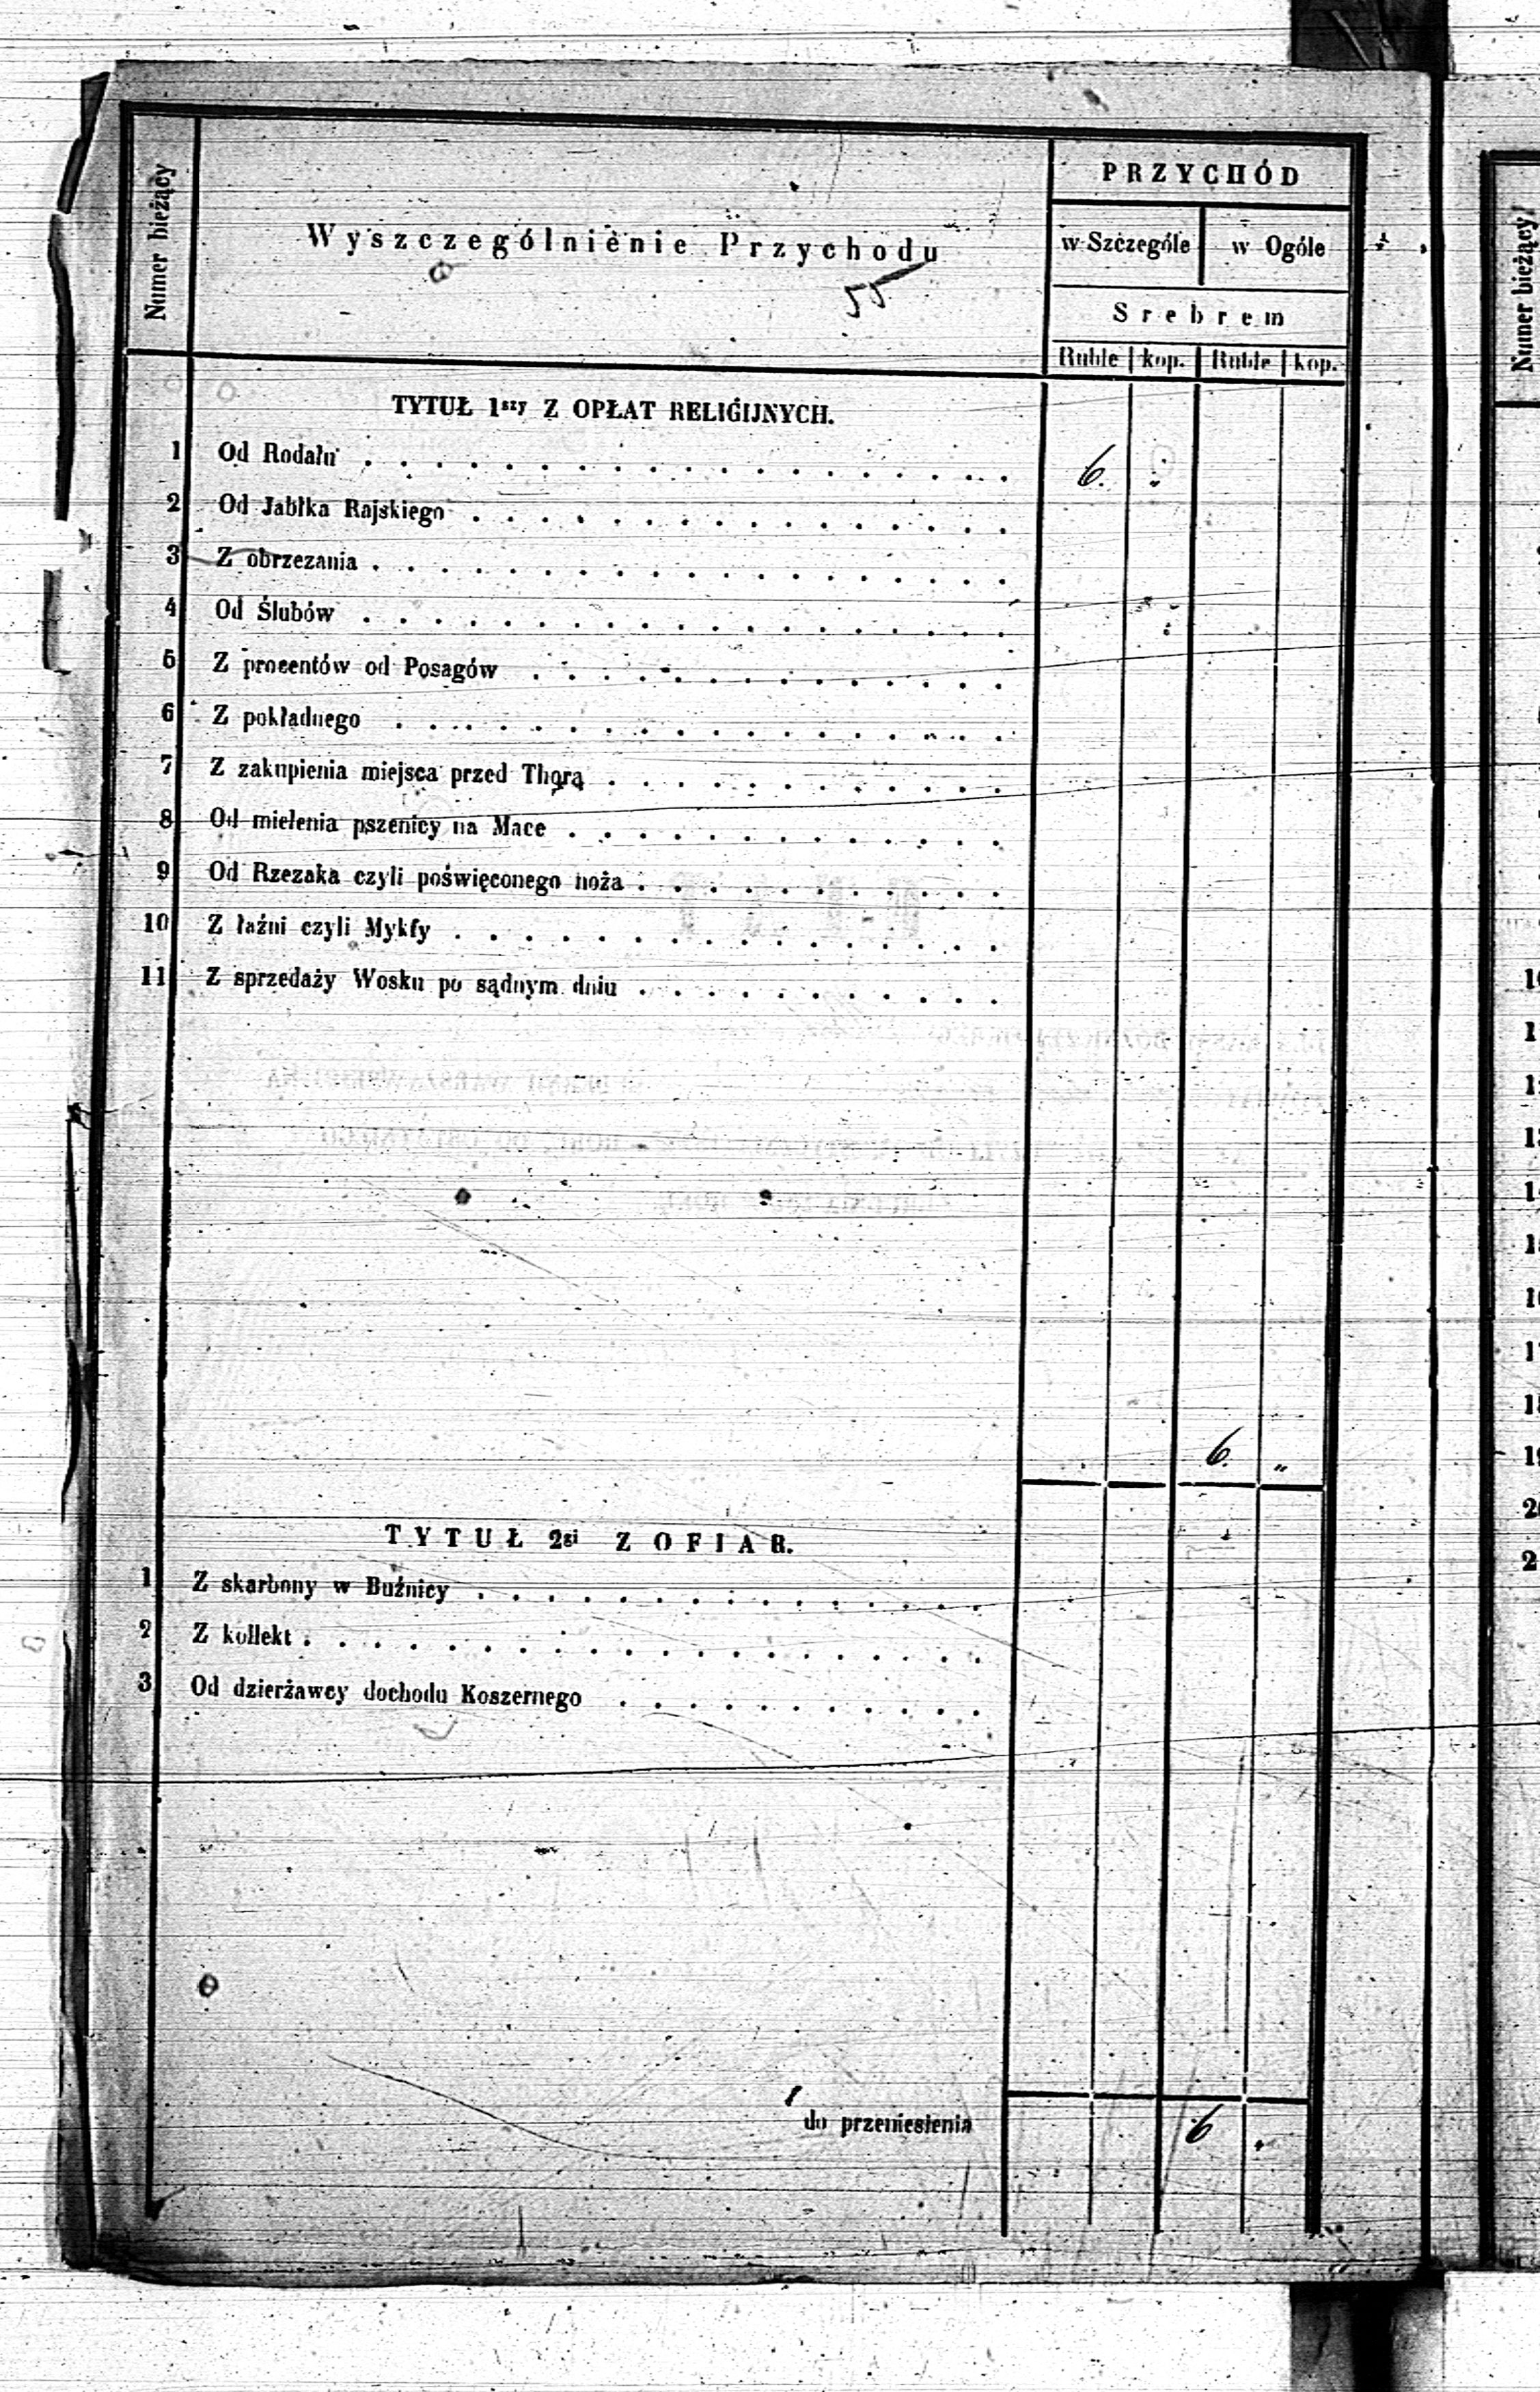 Numer bieżący
Wyszczególnienie Przychodu
55
PRZYCHÓD
w Szczególe w Ogóle
Srebrem
Ruble kop. Ruble kop.
TYTUŁ 1szy Z OPŁAT RELIGIJNYCH.
1 Od Rodału . . . . . . . . . . . . . . . . . . 6 "
2 Od Jabłka Rajskiego . . . . . . . . . . . . . . . .
3 Z obrzezania . . . . . . . . . . . . . . . . . .
4 Od Ślubów . . . . . . . . . . . . . . . . . . .
5 Z procentów od Posagów . . . . . . . . . . . . . .
6 Z pokładnego . . . . . . . . . . . . . . . . . .
7 Z zakupienia miejsca przed Thorą . . . . . . . . . . . .
8 Od mielenia pszenicy na Mace . . . . . . . . . . . . .
9 Od Rzezaka czyli poświęconego noża . . . . . . . . . . .
10 Z łaźni czyli Mykfy . . . . . . . . . . . . . . . .
11 Z sprzedaży Wosku po sądnym dniu . . . . . . . . . . .
6 "
TYTUŁ 2gi Z OFIAR.
1 Z skarbony w Buźnicy . . . . . . . . . . . . . . .
2 Z kollekt . . . . . . . . . . . . . . . . . . . .
3 Od dzierżawcy dochodu Koszernego . . . . . . . . . . .
do przeniesienia 6 "
Numer bieżący